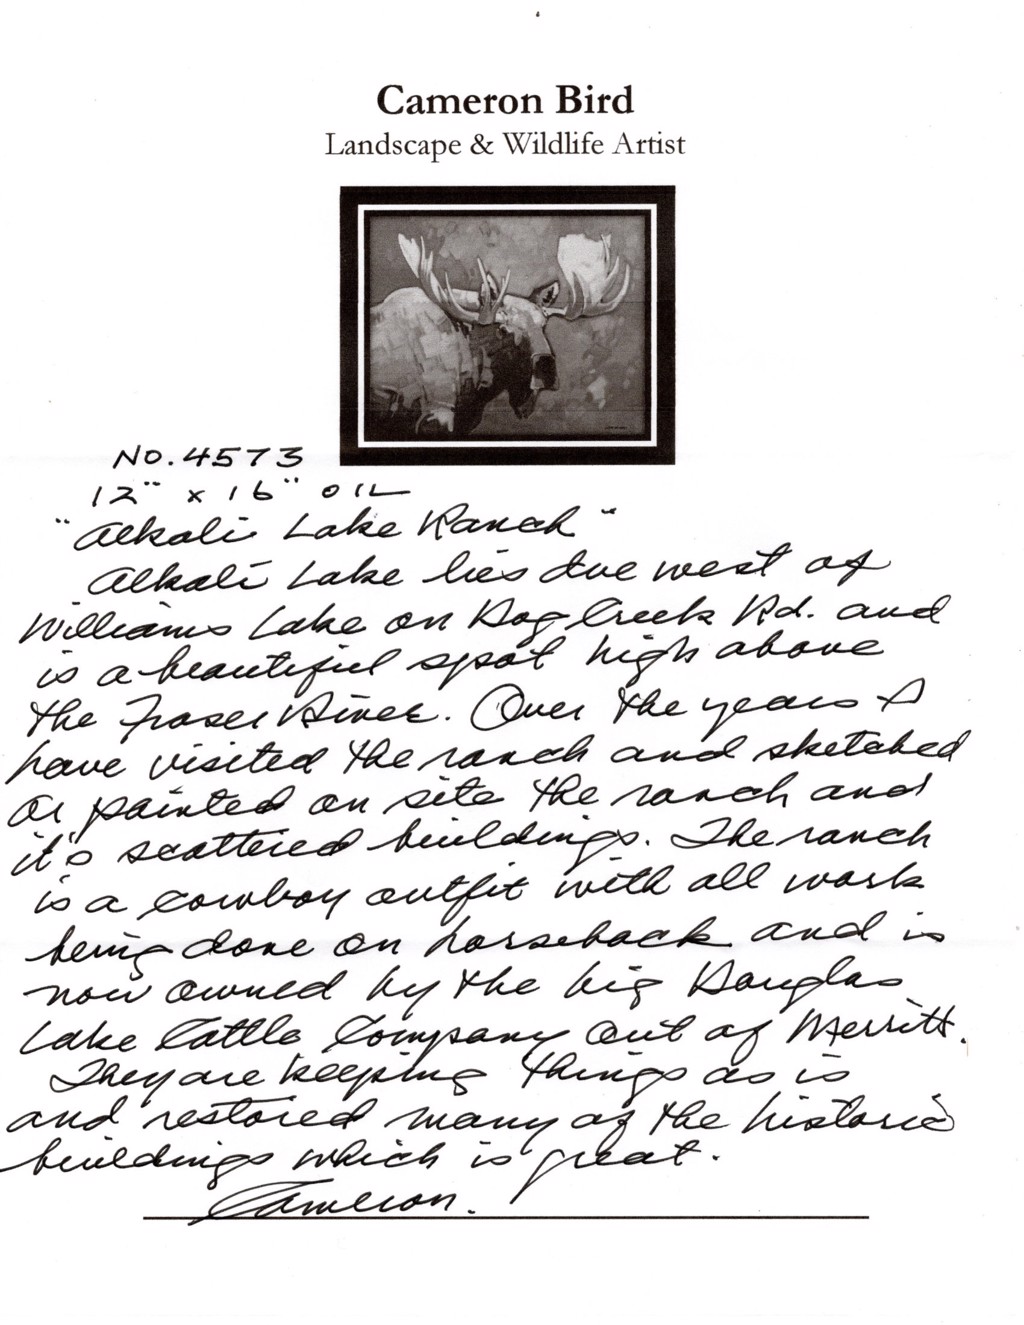 Cameron Bird
Landscape & Wildlife Artist
No. 4573
12" x 16" OIL
"Alkali Lake Ranch"
Alkali Lake lies due west of
Williams Lake on Dog Creek Rd. and
is a beautiful spot high above
the Fraser River. Over the years I
have visited the ranch and sketched
or painted on site the ranch and
it's scattered buildings. The ranch
is a cowboy outfit with all work
being done on horseback and is
now owned by the big Douglas
Lake Cattle Company out of Merritt.
They are keeping things as is
and restored many of the historic
buildings which is great.
Cameron.